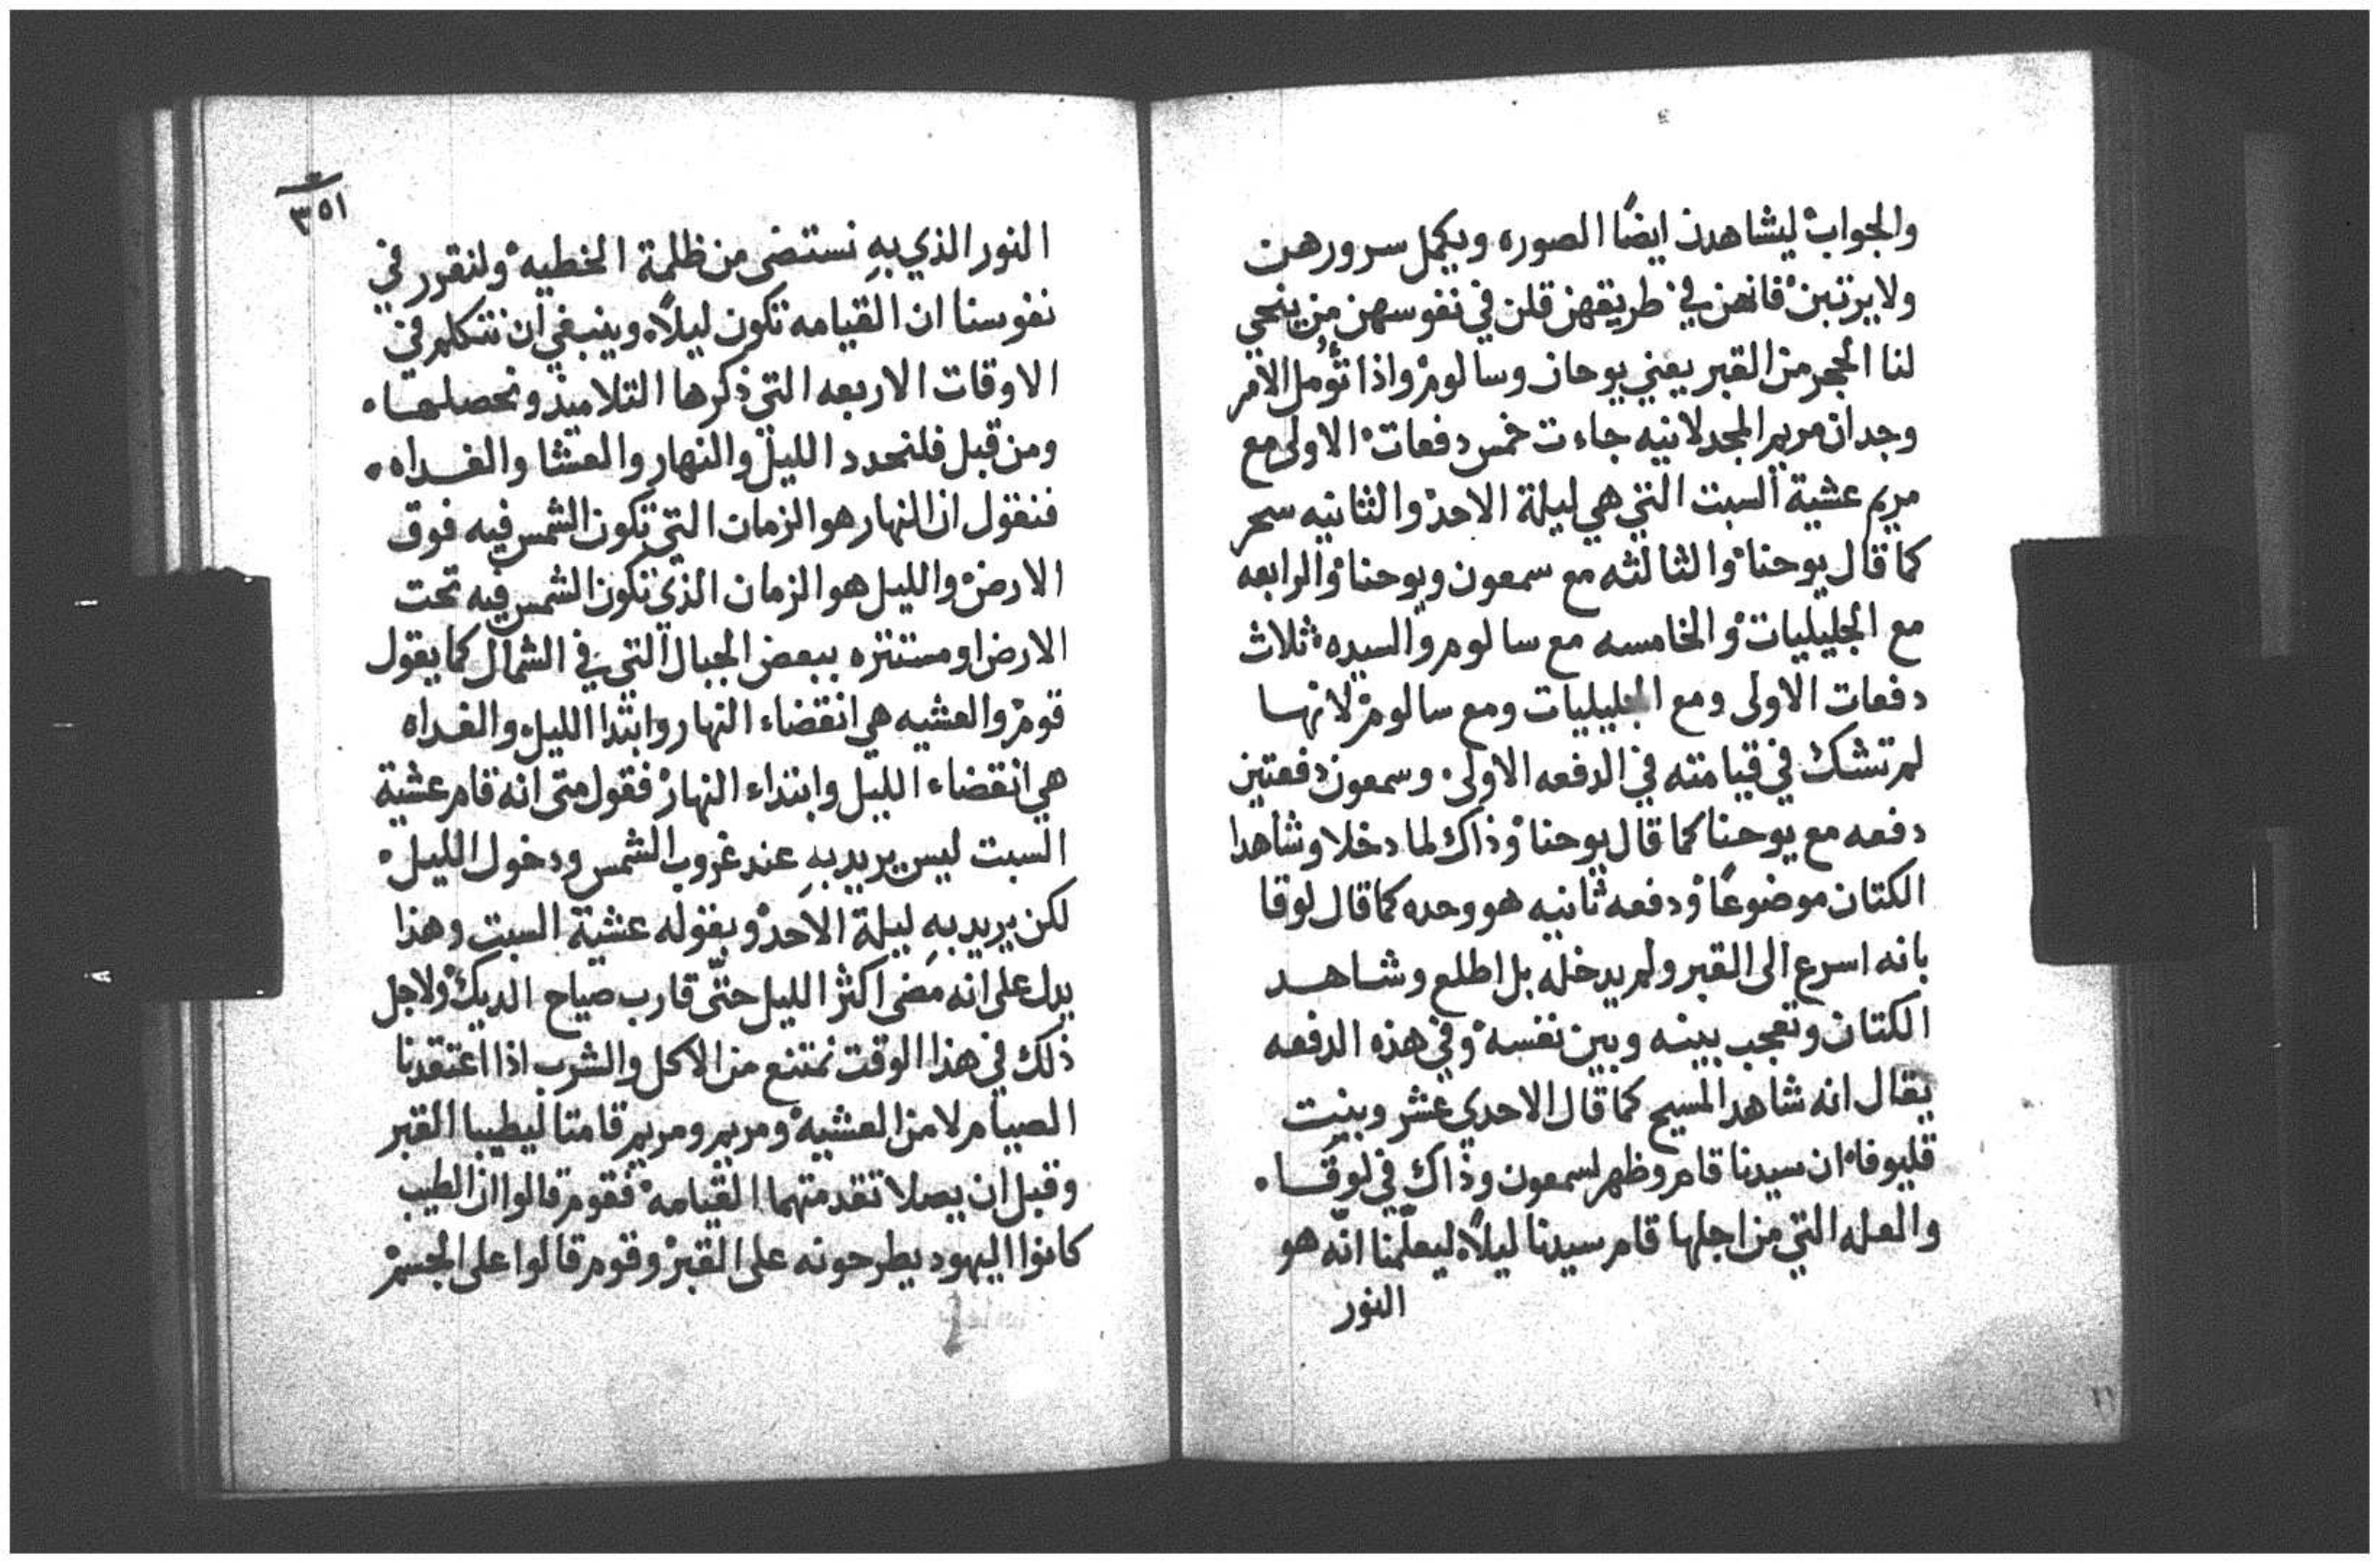 والجواب ليشاهدن ايضًا الصوره ويكمل سرورهن
ولا يرتبن فانهن في طريقهن قلن في نفوسهن من ينحي
لنا الحجر من القبر يعني يوحان وسالوم واذا تؤمل الامر
وجد ان مريم المجدلانيه جاءت خمس دفعات الاولى مع
مريم عشية السبت التي هي ليلة الاحد والثانيه سحر
كما قال يوحنا والثالثه مع سمعون ويوحنا والرابعه
مع الجليليات والخامسه مع سالوم والسيده ثلاث
دفعات الاولى ومع الجليليات ومع سالوم لانها
لم تشك في قيامته في الدفعه الاولى وسمعون دفعتين
دفعه مع يوحنا كما قال يوحنا وذاك لما دخلا وشاهدا
الكتان موضوعًا ودفعه ثانيه هو وحده كما قال لوقا
بانه اسرع الى القبر ولم يدخله بل اطلع وشاهد
الكتان وتعجب بينه وبين نفسه وفي هذه الدفعه
يقال انه شاهد المسيح كما قال الاحدي عشر وبيت
قليوفا ان سيدنا قام وظهر لسمعون وذاك في لوقا
والعله التي من اجلها قام سيدنا ليلًا ليعلّمنا انّه هو
النور
٣٥١
النور الذي بهِ نستضى من ظلمة الخطيه ولنقرر في
نفوسنا ان القيامه تكون ليلًا وينبغي ان نتكلم في
الاوقات الاربعه التي ذكرها التلاميذ ونحصلها
ومن قبل فلنحدد الليل والنهار والعشا والغداه
فنقول ان النهار هو الزمان التي تكون الشمس فيه فوق
الارض والليل هو الزمان الذي تكون الشمس فيه تحت
الارض او مستتره ببعض الجبال التي في الشمال كما يقول
قوم والعشيه هي انقضاء النهار وابتدا الليل والغداه
هي انقضاء الليل وابتداء النهار فقول متى انه قام عشية
السبت ليس يريد بهِ عند غروب الشمس ودخول الليل
لكن يريد بهِ ليلة الاحد وبقوله عشية السبت وهذا
يدل على انه مضى اكثر الليل حتّى قارب صياح الديك ولاجل
ذلك في هذا الوقت نمتنع من الاكل والشرب اذا اعتقدنا
الصيام لا من العشيه ومريم ومريم قامتا ليطيبا القبر
وقبل ان يصلا تقدمتهما القيامه فقوم قالوا ان الطيب
كانوا اليهود يطرحونه على القبر وقوم قالوا على الجسم